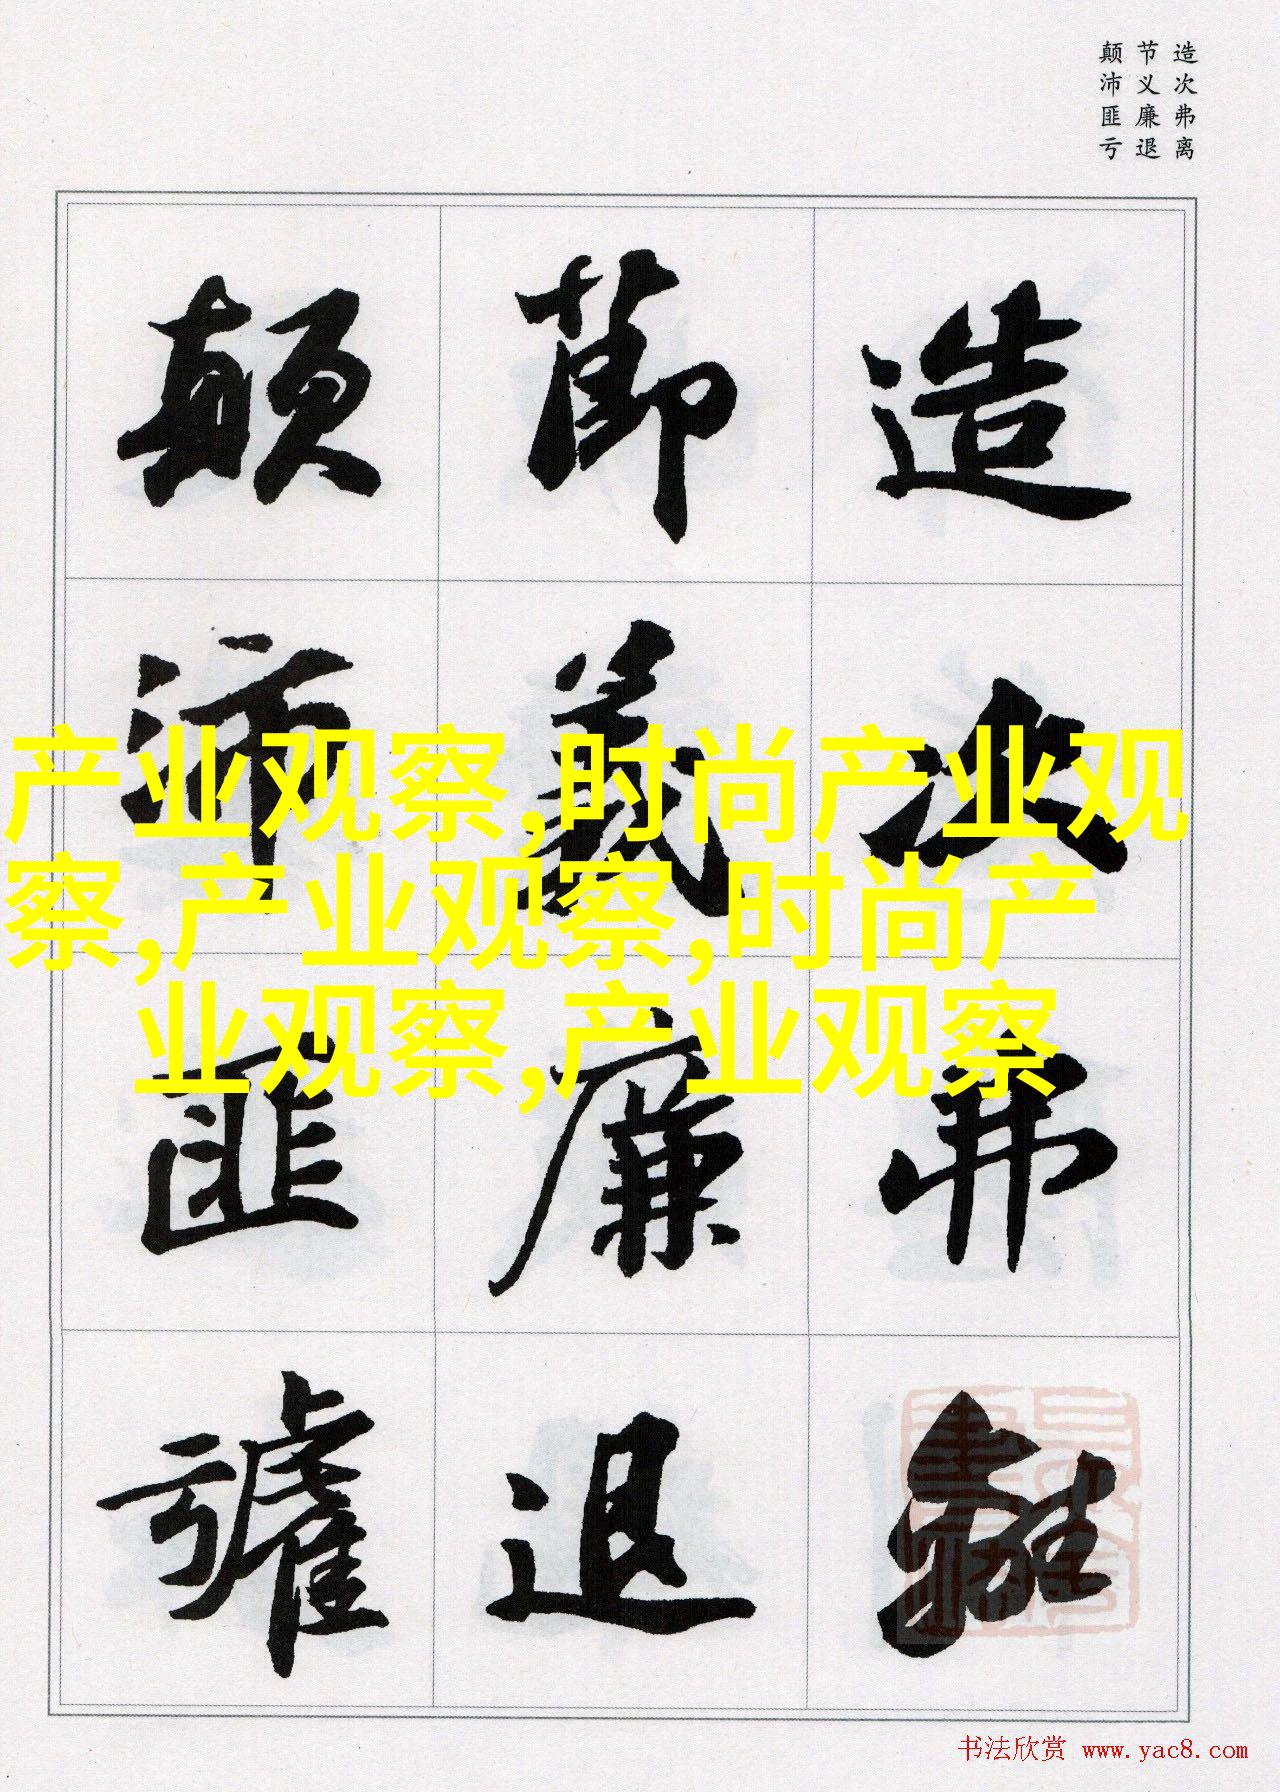 造次弗离
节义廉退
颠沛匪亏
造次弗離
節義廉退
顛沛匪虧
产业观察,时尚产业观
察,产业观察,时尚产
业观察,产业观察
书法欣赏 www.yac8.com